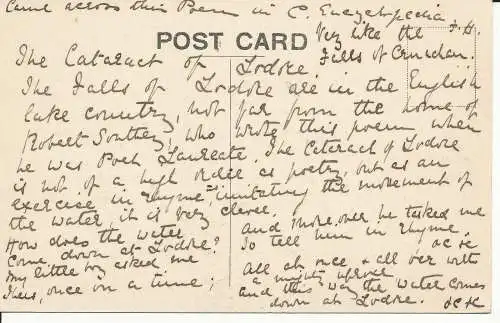 Came across this Poem in C. Encyclopedia
Very like the F.H.
Falls of Cruachan.
POST CARD
The Cataract of Lodore.
The Falls of Lodore are in the English
lake country, not far from the home of
Robert Southey, who wrote this poem when
he was Poet Laureate. The Cataract of Lodore
is not of a high order as poetry, but as an
exercise in rhyme, imitating the movement of
the water, it is very clever.
How does the water
Come down at Lodore?
My little boy asked me
Thus, once on a time;
And moreover he tasked me
To tell him in rhyme.
&c &c
All at once & all over with
a mighty uproar
and this way the water comes
down at Lodore. &c &c